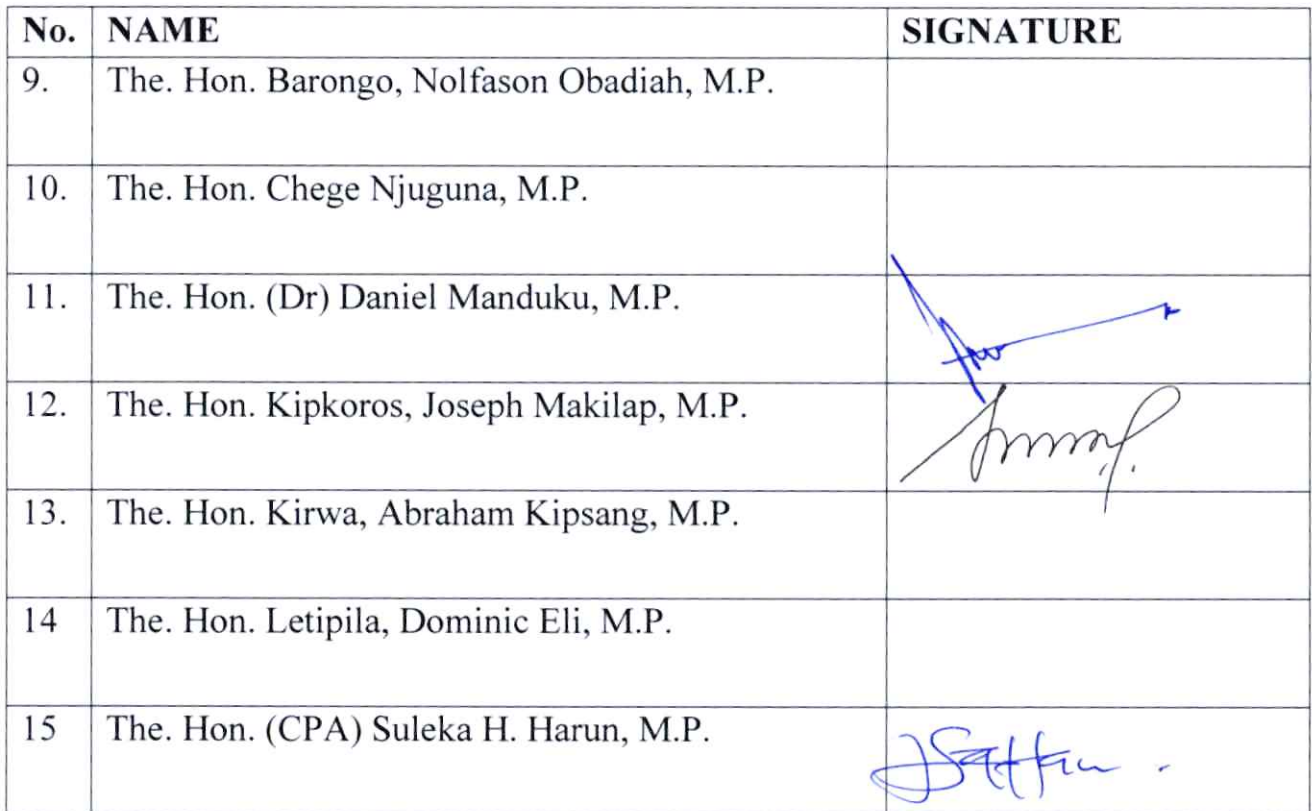 No. NAME SIGNATURE
9. The. Hon. Barongo, Nolfason Obadiah, M.P.
10. The. Hon. Chege Njuguna, M.P.
11. The. Hon. (Dr) Daniel Manduku, M.P.
12. The. Hon. Kipkoros, Joseph Makilap, M.P.
13. The. Hon. Kirwa, Abraham Kipsang, M.P.
14 The. Hon. Letipila, Dominic Eli, M.P.
15 The. Hon. (CPA) Suleka H. Harun, M.P.